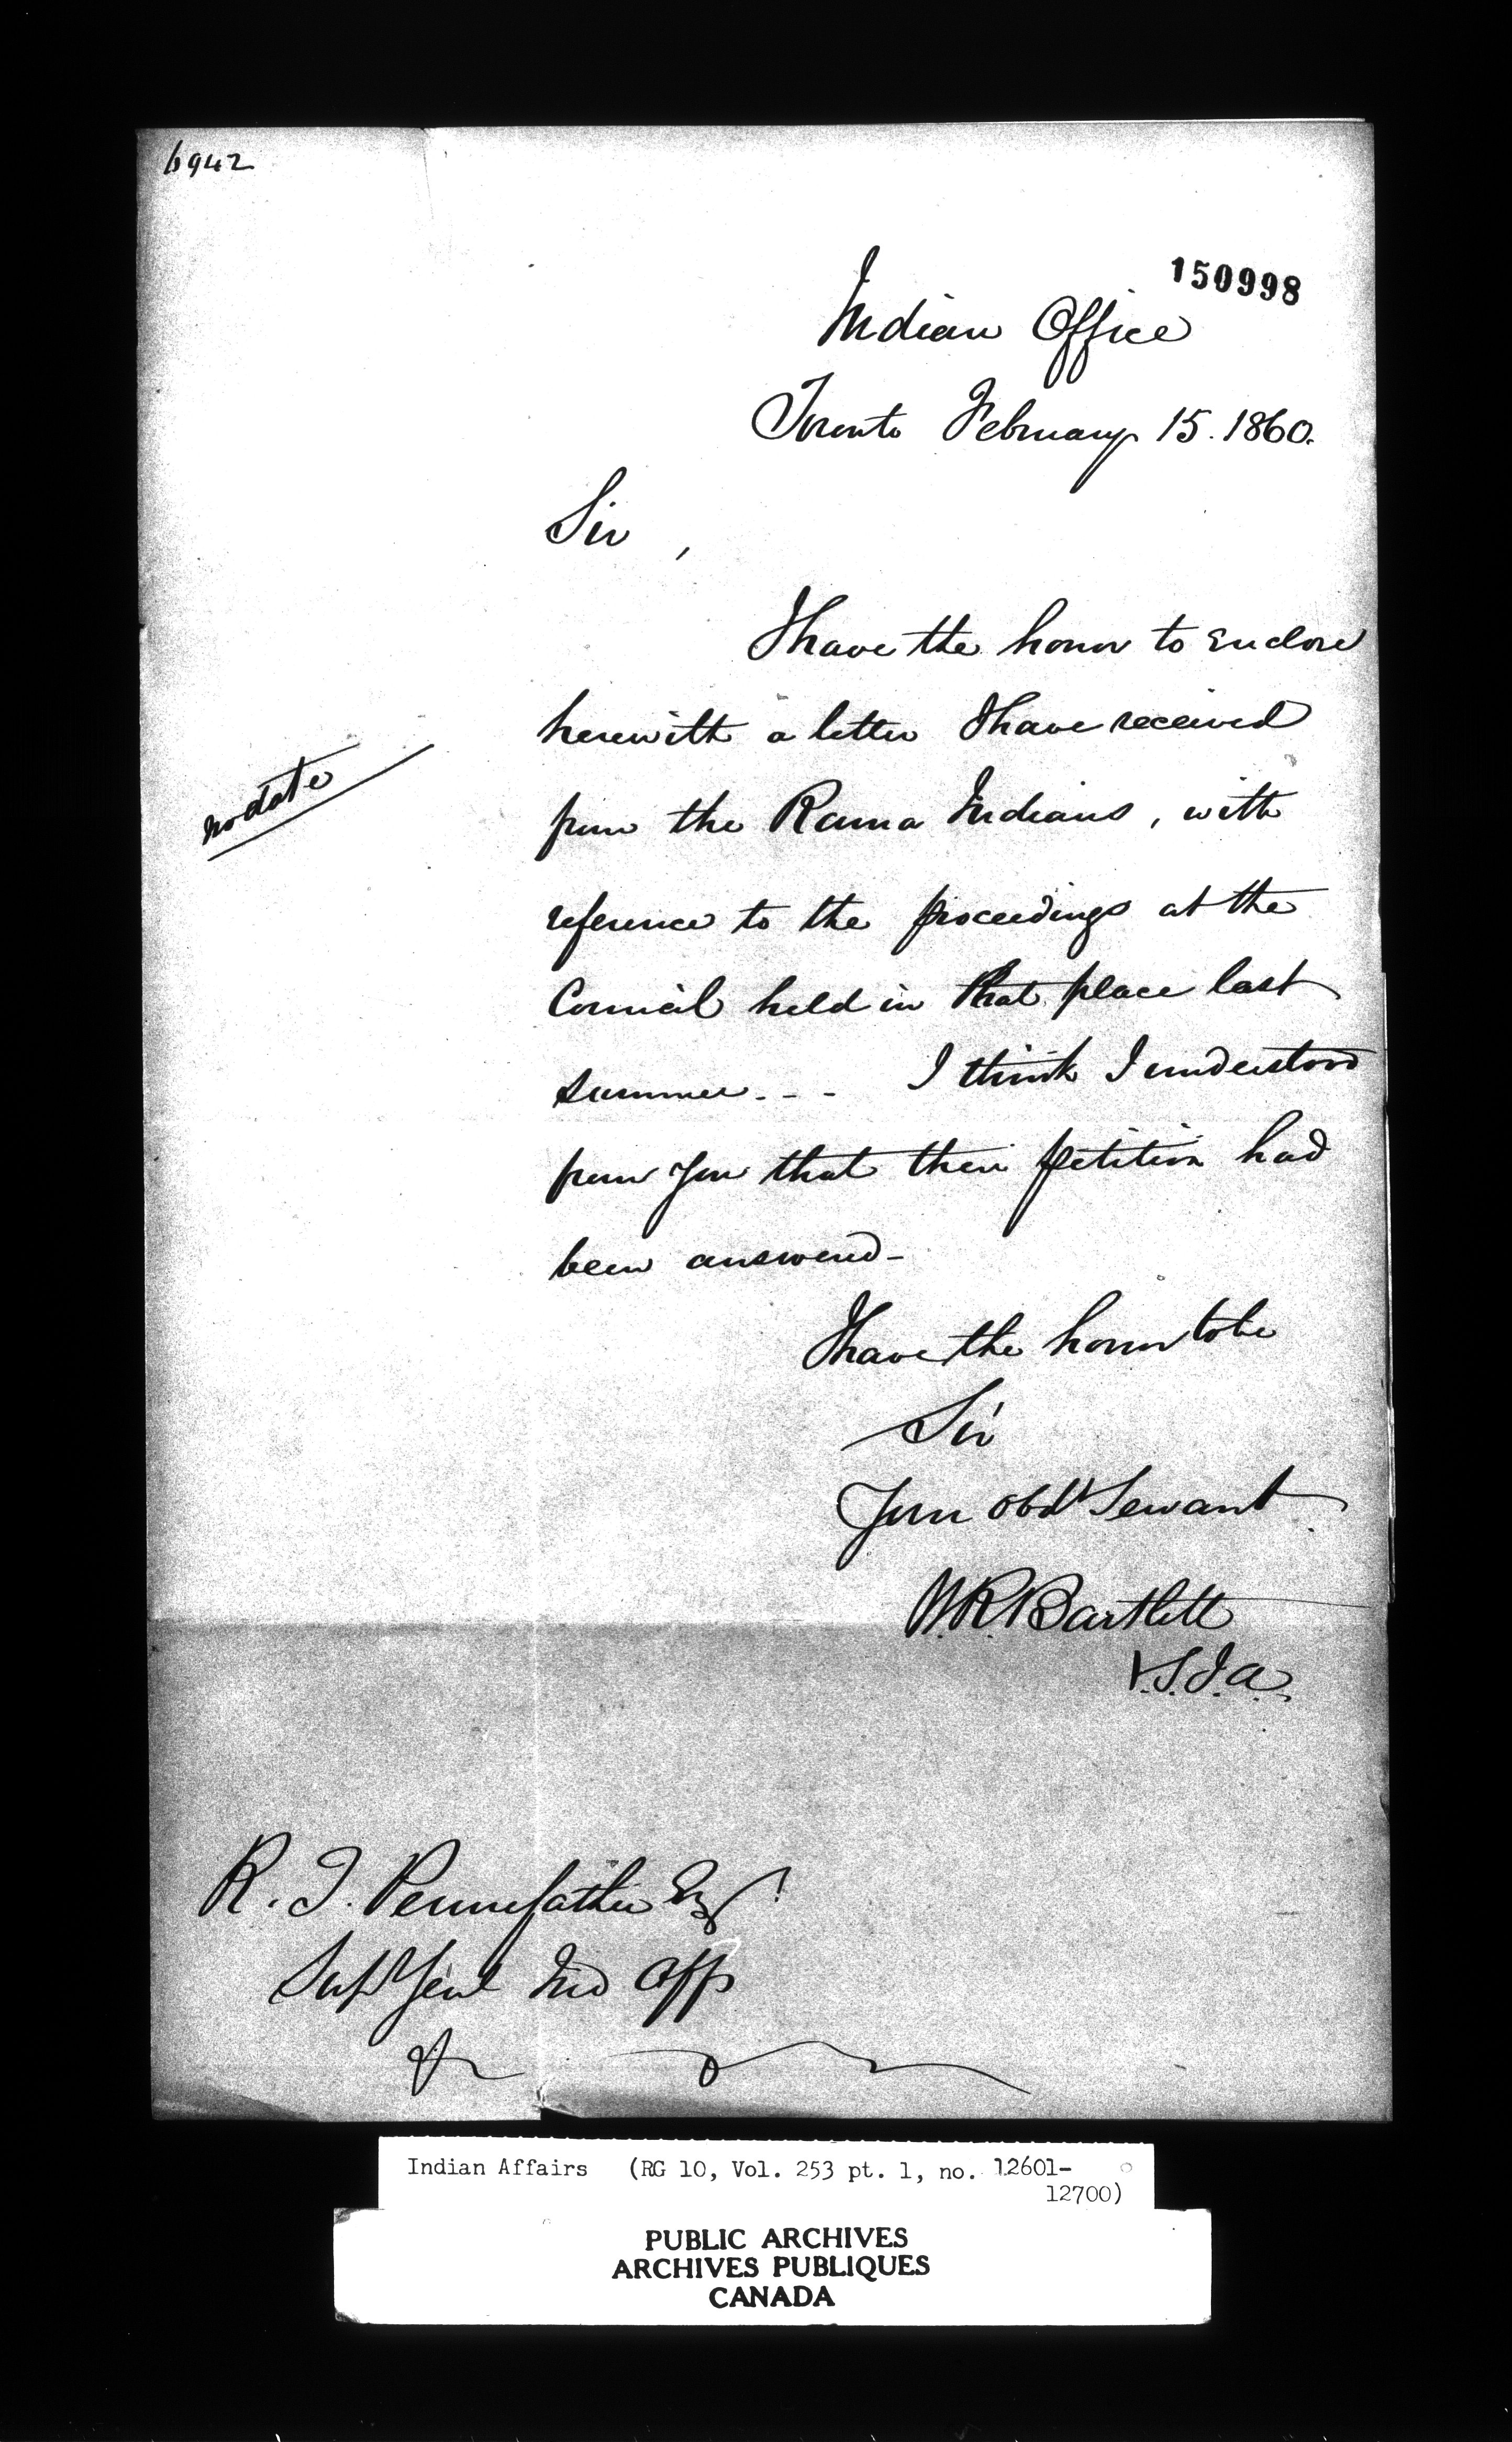 6942
150998
Indian Office
Toronto February 15. 1860.
Sir,
I have the honor to enclose
herewith a letter I have received
no date
from the Rama Indians, with
reference to the proceedings at the
Council held in that place last
summer - - - I think I understood
from you that their petition had
been answered -
I have the honor to be
Sir
Your obdt Servant
W.R. Bartlett
V.S.I.A.
R. T. Pennefather Esqr
Supt Genl Ind Affs
Indian Affairs (RG 10, Vol. 253 pt. 1, no. 12601-
12700)
PUBLIC ARCHIVES
ARCHIVES PUBLIQUES
CANADA